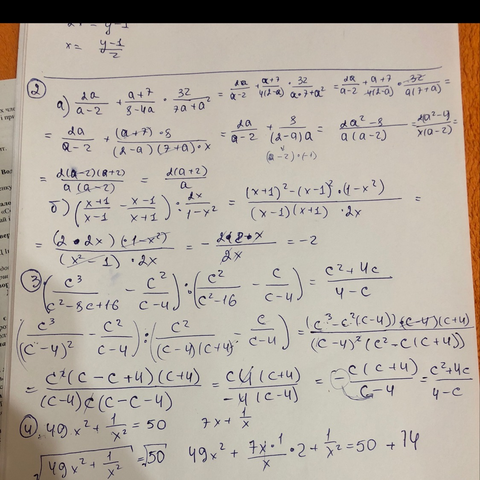 x = \frac{y-1}{2}
② а) \frac{2a}{a-2} + \frac{a+7}{8-4a} · \frac{32}{7a+a^2} = \frac{2a}{a-2} + \frac{a+7}{4(2-a)} · \frac{32}{a·7+a^2} = \frac{2a}{a-2} + \frac{a+7}{4(2-a)} · \frac{32}{a(7+a)} =
= \frac{2a}{a-2} + \frac{(a+7)·8}{(2-a)(7+a)·x} = \frac{2a}{a-2} + \frac{8}{(2-a)a} = \frac{2a^2-8}{a(a-2)} =
(a-2)·(-1)
= \frac{2(a-2)(a+2)}{a(a-2)} = \frac{2(a+2)}{a}
б) (\frac{x+1}{x-1} - \frac{x-1}{x+1}) : \frac{2x}{1-x^2} = \frac{(x+1)^2-(x-1)^2·(1-x^2)}{(x-1)(x+1)·2x} =
= \frac{(2·2x)(1-x^2)}{(x^2-1)·2x} = = -2
③ (\frac{c^3}{c^2-8c+16} - \frac{c^2}{c-4}) : (\frac{c^2}{c^2-16} - \frac{c}{c-4}) = \frac{c^2+4c}{4-c}
(\frac{c^3}{(c-4)^2} - \frac{c^2}{c-4}) : (\frac{c^2}{(c-4)(c+4)} - \frac{c}{c-4}) = \frac{(c^3-c^2(c-4))(c-4)(c+4)}{(c-4)^2(c^2-c(c+4))}
= \frac{c^2(c-c+4)(c+4)}{(c-4)c(c-c-4)} = \frac{c4(c+4)}{-4(c-4)} = -\frac{c(c+4)}{c-4} = \frac{c^2+4c}{4-c}
④ 49x^2 + \frac{1}{x^2} = 50 7x + \frac{1}{x}
\sqrt{49x^2 + \frac{1}{x^2}} = \sqrt{50} 49x^2 + \frac{7x·1}{x}·2 + \frac{1}{x^2} = 50 + 14